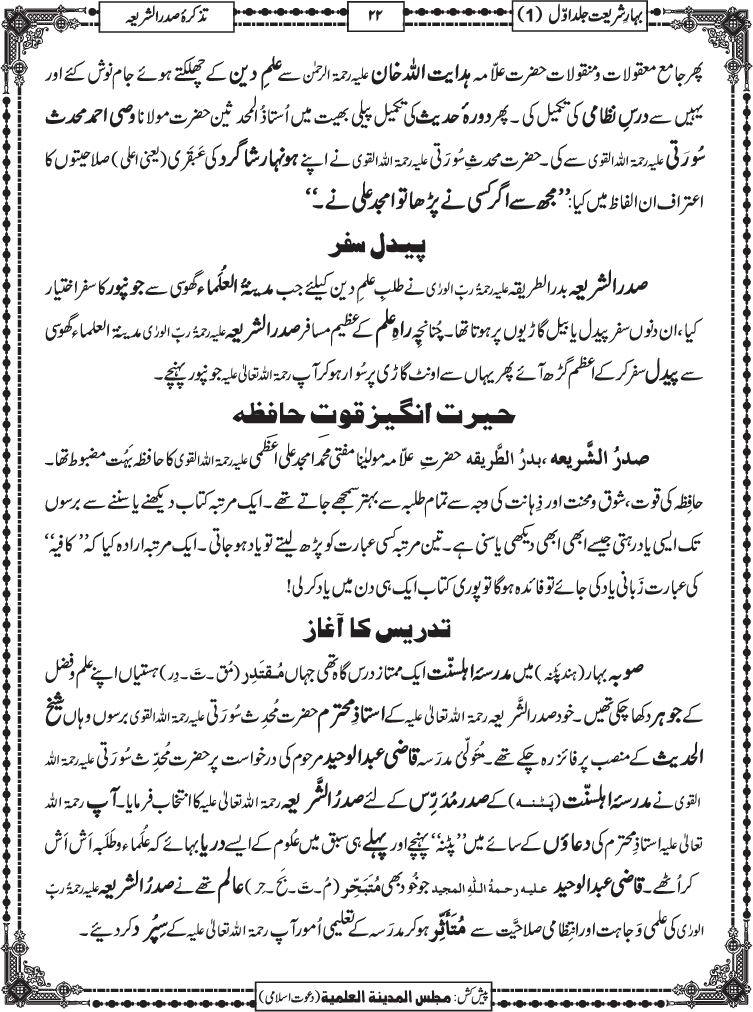 بہارِ شریعت جلد اوّل (1)
۲۲
تذکرۂ صدر الشریعہ
پھر جامع معقولات و منقولات حضرت علّامہ ہدایت اللہ خان علیہ رحمۃ الرحمٰن سے علمِ دین کے چھلکتے ہوئے جام نوش کئے اور
یہیں سے درسِ نظامی کی تکمیل کی ۔ پھر دورۂ حدیث کی تکمیل پیلی بھیت میں اُستاذُ المحدثین حضرت مولانا وصی احمد محدث
سُورَتی علیہ رحمۃ اللہ القوی سے کی ۔ حضرت محدثِ سُورَتی علیہ رحمۃ اللہ القوی نے اپنے ہونہار شاگرد کی عَبقَری (یعنی اعلی) صلاحیتوں کا
اعتراف ان الفاظ میں کیا: ’’مجھ سے اگر کسی نے پڑھا تو امجد علی نے ۔‘‘
پیدل سفر
صدر الشریعہ بدر الطریقہ علیہ رحمۃُ ربِّ الورٰی نے طلبِ علمِ دین کیلئے جب مدینۃُ العُلَماء گھوسی سے جونپور کا سفر اختیار
کیا ، ان دنوں سفر پیدل یا بیل گاڑیوں پر ہوتا تھا ۔ چُنانچِہ راہِ علم کے عظیم مسافر صدر الشریعہ علیہ رحمۃُ ربِّ الورٰی مدینۃ العلماء گھوسی
سے پیدل سفر کر کے اعظم گڑھ آئے پھر یہاں سے اونٹ گاڑی پر سُوار ہو کر آپ رحمۃ اللہ تعالیٰ علیہ جونپور پہنچے ۔
حیرت انگیز قوت حافظہ
صدرُ الشَّریعہ ،بدرُ الطَّریقہ حضرتِ علّامہ مولیٰنا مفتی محمد امجد علی اعظمی علیہ رحمۃ اللہ القوی کا حافظہ بَہُت مضبوط تھا ۔
حافِظہ کی قوت ، شوق و محنت اور ذِہانت کی وجہ سے تمام طلبہ سے بہتر سمجھے جاتے تھے ۔ ایک مرتبہ کتاب دیکھنے یا سننے سے برسوں
تک ایسی یاد رہتی جیسے ابھی ابھی دیکھی یا سنی ہے ۔ تین مرتبہ کسی عبارت کو پڑھ لیتے تو یاد ہو جاتی ۔ ایک مرتبہ ارادہ کیا کہ ’’ کافیہ‘‘
کی عبارت زَبانی یاد کی جائے تو فائدہ ہو گا تو پوری کتاب ایک ہی دن میں یاد کر لی!
تدریس کا آغاز
صوبہ بہار (ہند پٹنہ) میں مدرسۂ اہلسنّت ایک ممتاز درس گاہ تھی جہاں مُقتَدِر (مُق ۔ تَ ۔ دِر) ہستیاں اپنے علم و فضل
کے جوہر دکھا چکی تھیں ۔ خود صدر الشَّریعہ رحمۃ اللہ تعالیٰ علیہ کے استاذِ محترم حضرت مُحدِث سُورَتی علیہ رحمۃ اللہ القوی برسوں وہاں شیخُ
الحدیث کے منصب پر فائز رہ چکے تھے ۔ مُتَولّیِ مدرَسہ قاضی عبدالوحید مرحوم کی درخواست پر حضرت مُحَدِّث سُورَتی علیہ رحمۃ اللہ
القوی نے مدرسۂ اہلسنّت (پَٹنہ) کے صدر مُدَرِّس کے لئے صدرُ الشَّریعہ رحمۃ اللہ تعالیٰ علیہ کا انتخاب فرمایا ۔ آپ رحمۃ اللہ
تعالیٰ علیہ استاذِ محترم کی دعاؤں کے سائے میں ’’پٹنہ‘‘ پہنچے اور پہلے ہی سبق میں عُلوم کے ایسے دریا بہائے کہ عُلَماء و طَلَبہ اَش اَش
کر اُٹھے ۔ قاضی عبدالوحید علیہ رحمۃُ اللہِ المجید جو خُود بھی مُتَبَحِّر (مُ ۔ تَ ۔ بَح ۔ حِر) عالم تھے نے صدرُ الشریعہ علیہ رحمۃُ ربِّ
الورٰی کی علمی وَجاہت اور انتِظامی صلاحیَّت سے مُتَأَثِّر ہو کر مدرَسہ کے تعلیمی اُمور آپ رحمۃ اللہ تعالیٰ علیہ کے سِپُرد کر دئیے ۔
پیش کش: مجلس المدینۃ العلمیۃ (دعوت اسلامی)